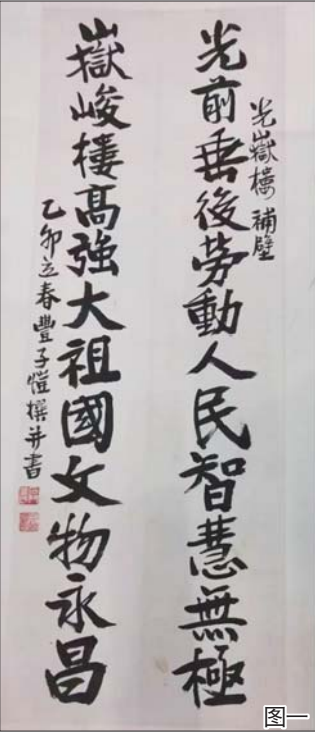 光嶽樓補壁
光前垂後勞動人民智慧無極
嶽峻樓高強大祖國文物永昌
乙卯立春豐子愷撰并書
图一